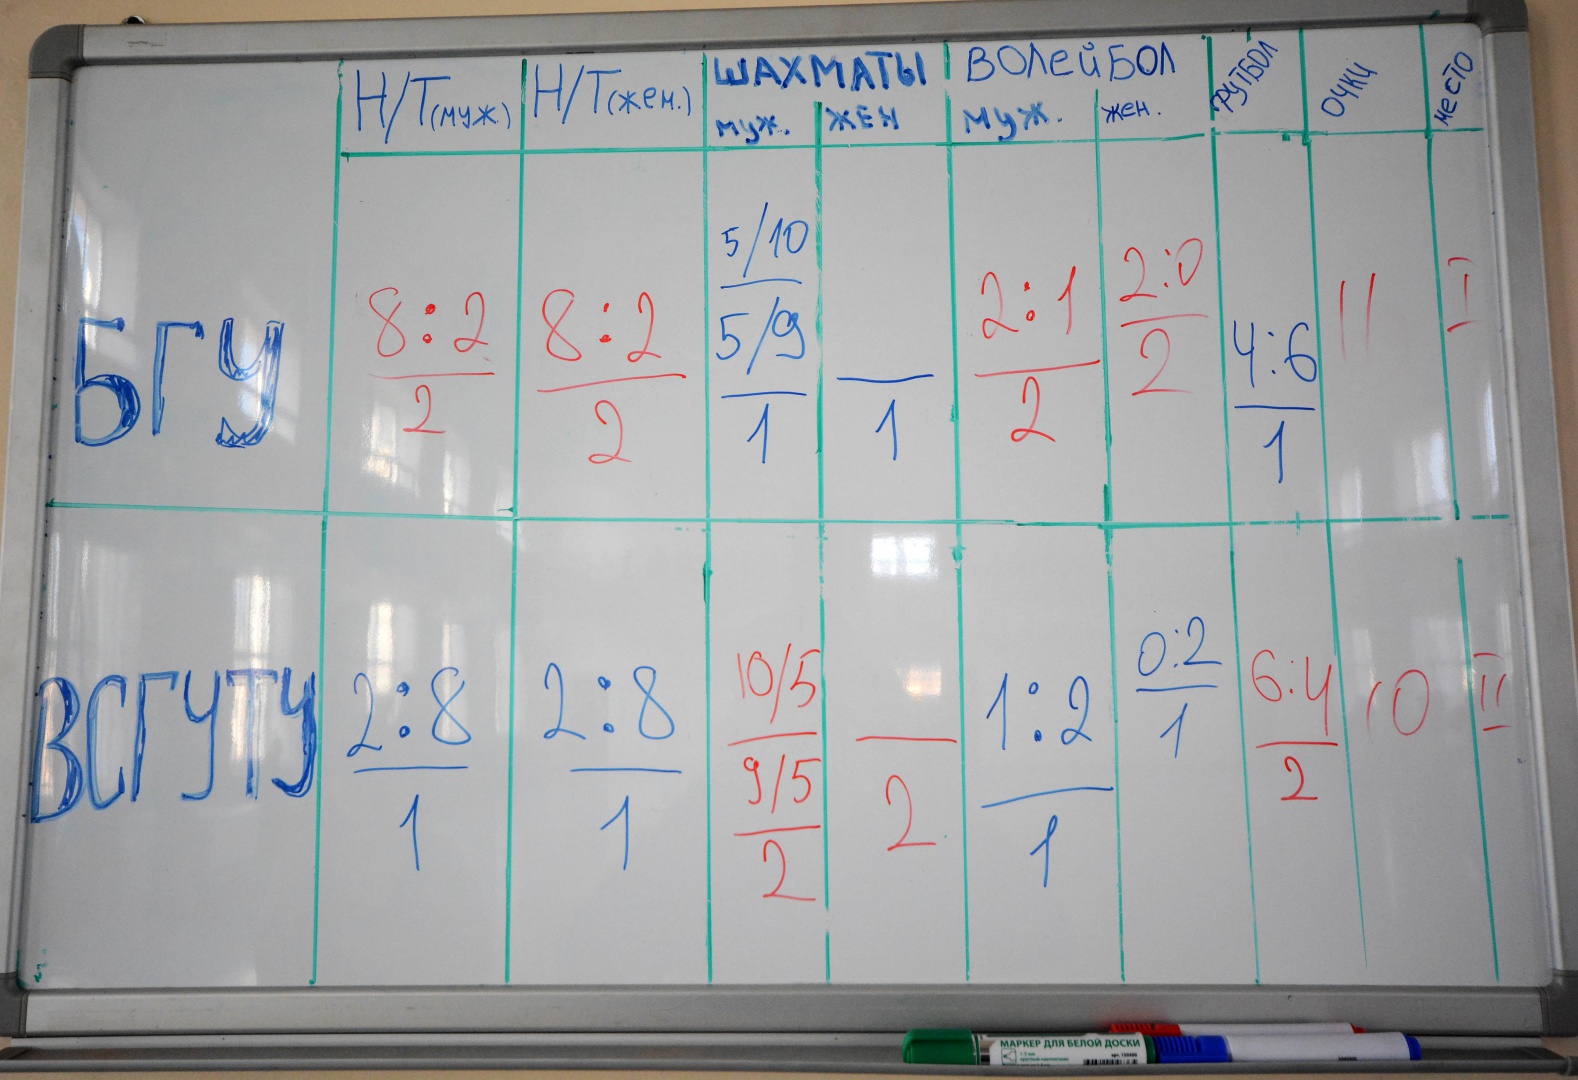 Н/Т(муж) Н/Т(жен.) ШАХМАТЫ ВОЛЕЙБОЛ ФУТБОЛ ОЧКИ МЕСТО
муж. ЖЕН муж. жен.
БГУ 8:2 8:2 5/10 2:1 2:0 4:6 11 I
2 2 5/9 1 2 2 1
1
ВСГУТУ 2:8 2:8 10/5 1:2 0:2 6:4 10 II
1 1 9/5 2 1 1 2
2
МАРКЕР ДЛЯ БЕЛОЙ ДОСКИ